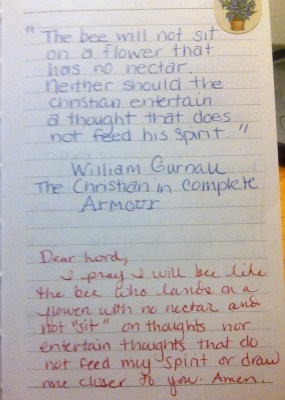 "The bee will not sit
on a flower that
has no nectar.
Neither should the
christian entertain
a thought that does
not feed his spirit."
William Gurnall
The Christian in Complete
Armour
Dear Lord,
I pray I will bee like
the bee who lands on a
flower with no nectar and
not "sit" on thoughts nor
entertain thoughts that do
not feed my spirit or draw
me closer to you. Amen.